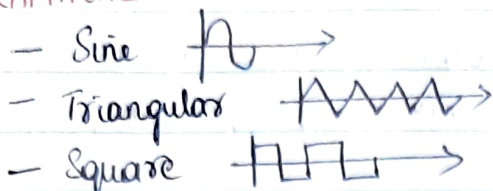 - Sine
- Triangular
- Square